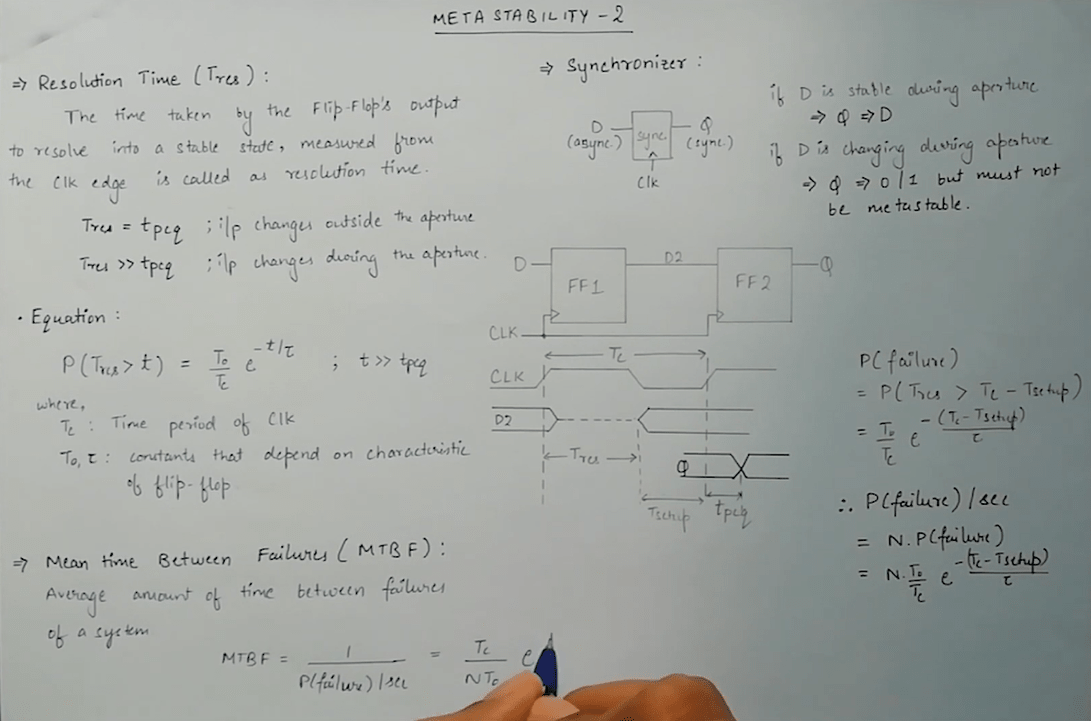 META STABILITY - 2
⇒ Resolution Time (Tres) :
The time taken by the Flip-Flop's output
to resolve into a stable state, measured from
the Clk edge is called as resolution time.
Tres = tpcq ; i/p changes outside the aperture
Tres >> tpcq ; i/p changes during the aperture.
• Equation :
P(Tres > t) = To/Tc e^-t/τ ; t >> tpcq
where,
Tc : Time period of Clk
To, τ : constants that depend on characteristic
of flip-flop
⇒ Mean time Between Failures (MTBF) :
Average amount of time between failures
of a system
MTBF = 1/P(failure)/sec = Tc/NTo e
⇒ Synchronizer :
D (async.) sync. Q (sync.)
Clk
if D is stable during aperture
⇒ Q ⇒ D
if D is changing during aperture
⇒ Q ⇒ 0/1 but must not
be metastable.
D FF1 D2 FF2 Q
CLK
Tc
CLK
D2
Tres
Q
Tsetup tpcq
P(failure)
= P(Tres > Tc - Tsetup)
= To/Tc e^-(Tc-Tsetup)/τ
∴ P(failure)/sec
= N.P(failure)
= N.To/Tc e^-(Tc-Tsetup)/τ